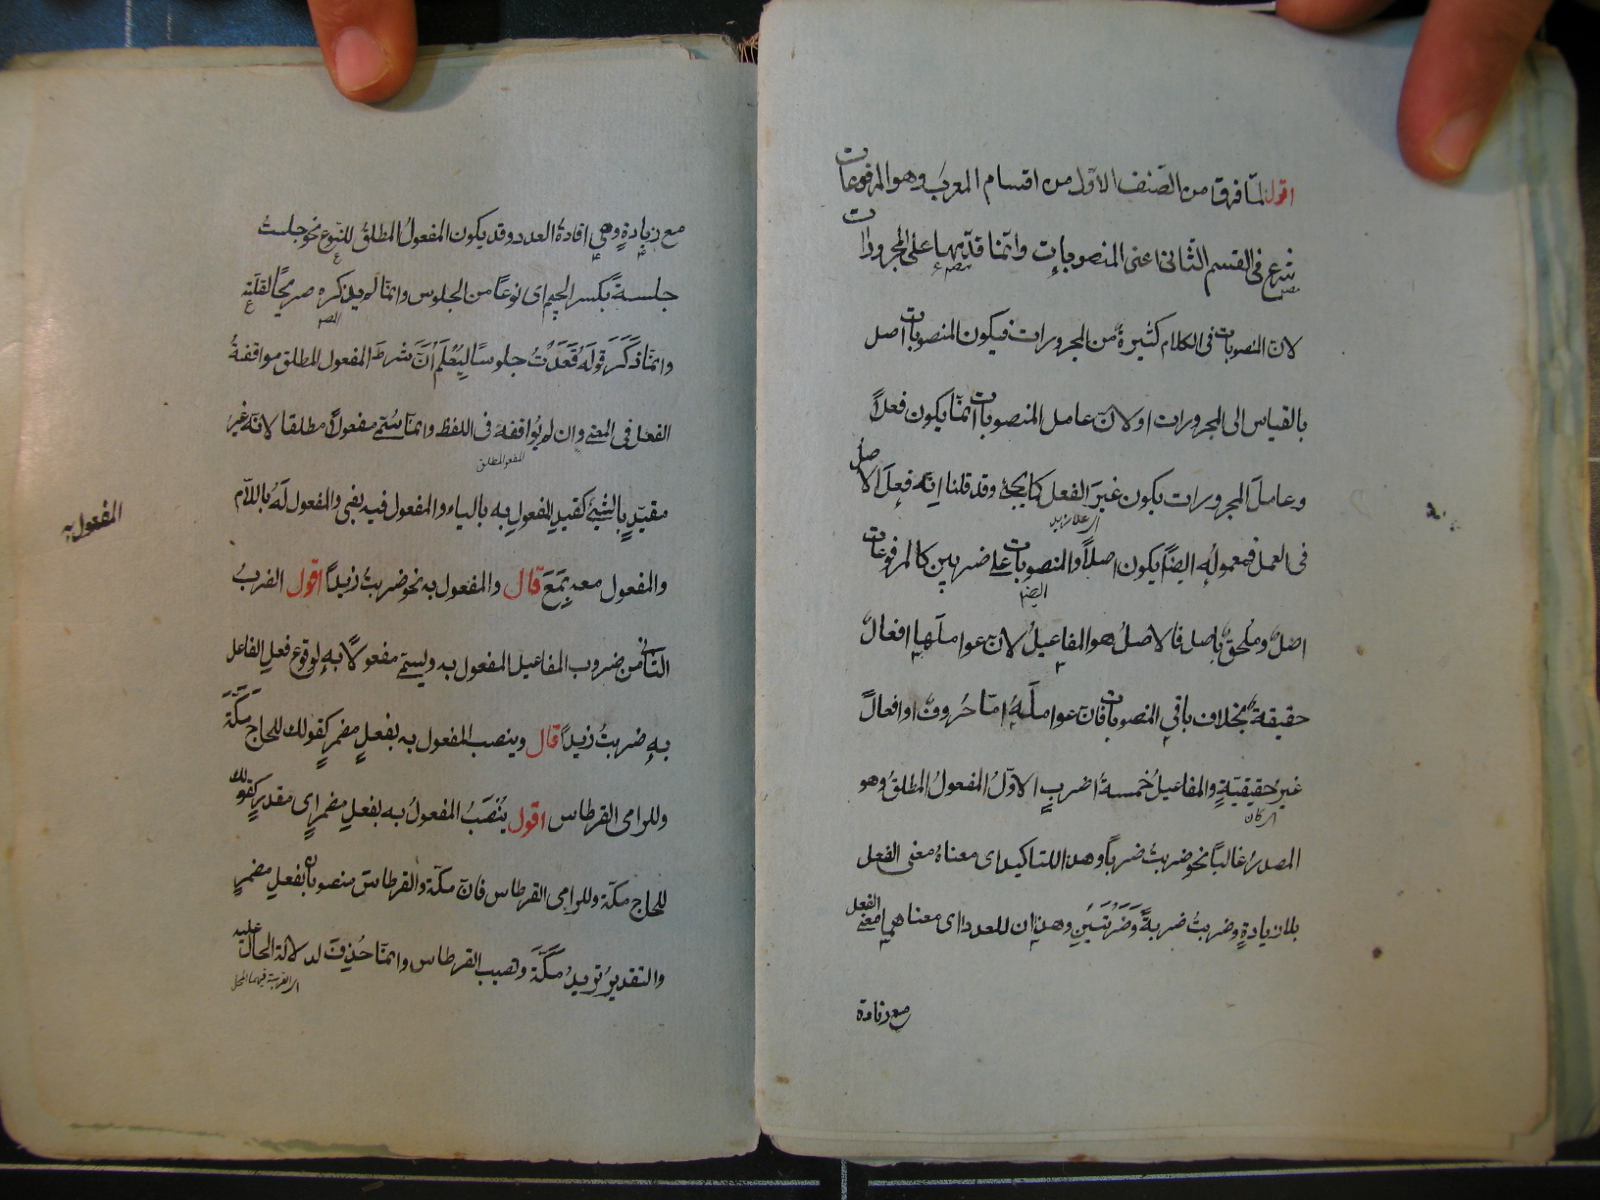 اقول لمّا فرق من الصّنف الاوّل من اقسام المعرب وهو المرفوعات
شرع فى القسم الثّانى اعنى المنصوبات وانّما قدّمها على المجرورات
لانّ المنصوبات فى الكلام كثيرة من المجرورات فيكون المنصوبات اصل
بالقياس الى المجرورات او لانّ عامل المنصوبات انّما يكون فعلاً
وعامل المجرورات يكون غيرَ الفعل كما يجئ وقد قلنا انّه فعل الاصل
فى العمل فمعموله ايضًا يكون اصلاً والمنصوبات على ضربين كالمرفوعات
اصلٌ وملحقٌ باصل فالاصلُ هو المفاعيلُ لانّ عواملَها افعالٌ
حقيقةً بخلاف باقي المنصوبات فانّ عواملَهُ امّا حروفٌ او افعالٌ
غيرُ حقيقيّةٍ والمفاعيلُ خمسةُ اضربٍ الاوّلُ المفعولُ المطلقُ وهو
المصدرُ غالباً نحو ضربتُ ضرباً وهذا للتاكيد اى معناهُ معنى الفعل
بلا زيادةٍ وضربتُ ضربةً وَضَرْبَتَيْنِ وهذان للعدد اى معناهما معنى الفعل
مع زيادة
مع زيادةٍ وهي افادةُ العدد وقد يكون المفعولُ المطلقُ للنّوع نحو جلستُ
جلسةً بكسر الجيم اى نوعًا من الجلوس وانّما لم يذكره صريحًا لقلّته
وانّما ذَكَرَ قولَهُ قَعَدْتُ جلوسًا لِيُعْلَمَ اَنَّ شرطَ المفعول المطلق موافقةُ
الفعل فى المعنى وان لم يُوافقه فى اللفظ وانّما سُمّى مفعولاً مطلقا لانّه غيرُ
المفعو المطلق
مقيّدٍ بالشئ كقيدِ المفعولِ به بالباء والمفعول فيه بفى والمفعول لَهُ باللّام
المفعول به
والمفعول معه بِمَعَ قال والمفعول به نحو ضربتُ زيدًا اقول الضربُ
الثّانى من ضروب المفاعيل المفعول به ويسمّى مفعولاً به لوقوع فعلِ الفاعل
بهِ ضربتُ زيداً قال وينصب المفعول به بفعلٍ مضمرٍ كقولك للحاج مَكَّةَ
وللرامى القرطاس اقول يُنْصَبُ المفعولُ به بفعلٍ مضمرٍ اى مقدرٍ كقولك
للحاج مكّة وللرامى القرطاس فانّ مكّة والقرطاسَ منصوبان بفعلٍ مضمرٍ
والتقديرُ تريدُ مكَّةَ وتصيب القرطاس وانّما حُذِفَ لدلالة الحال عليه